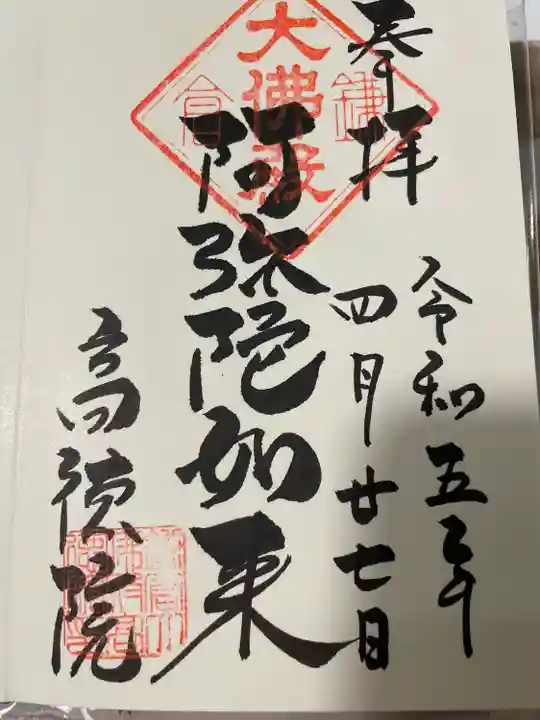 奉拝
令和五年
四月廿七日
鎌倉
大佛殿
阿弥陀如来
高徳院